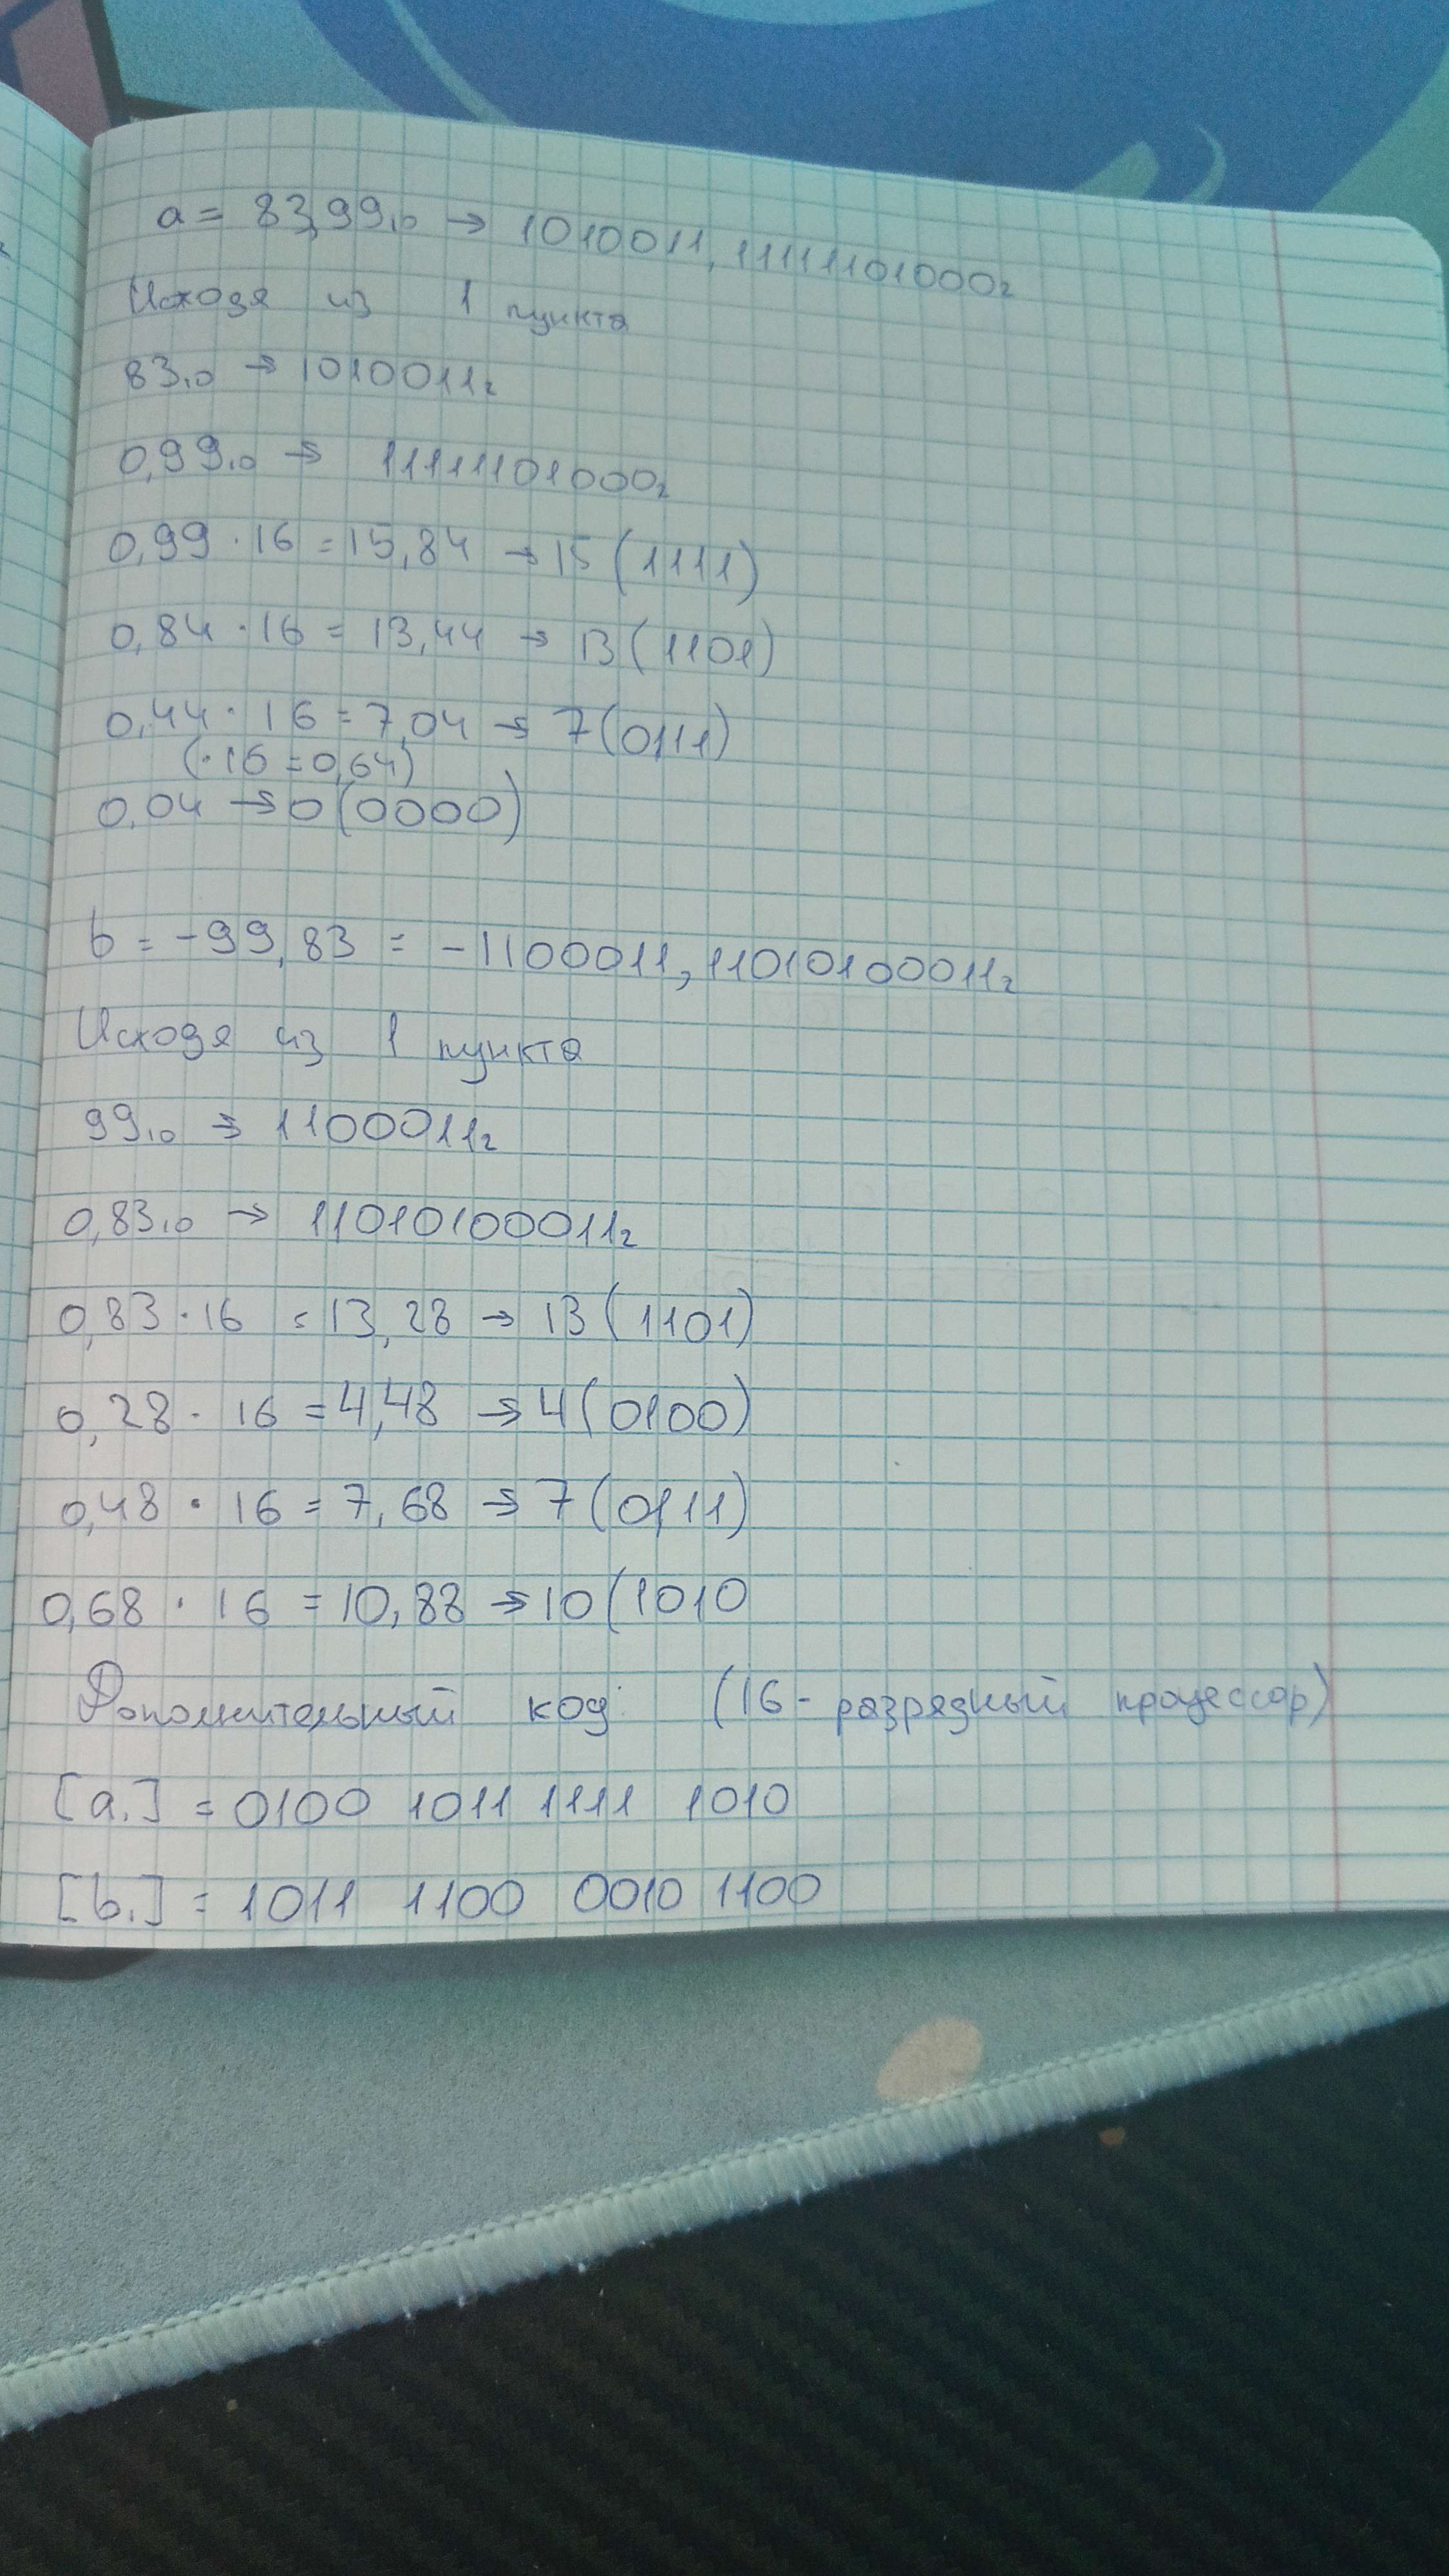 a = 83,99₁₀ → 1010011, 11111101000₂
Исходя из 1 пункта
83₁₀ → 1010011₂
0,99₁₀ → 11111101000₂
0,99 · 16 = 15,84 → 15 (1111)
0,84 · 16 = 13,44 → 13 (1101)
0,44 · 16 = 7,04 → 7 (0111)
(· 16 = 0,64)
0,04 → 0 (0000)
b = -99,83 = -1100011, 11010100011₂
Исходя из 1 пункта
99₁₀ → 1100011₂
0,83₁₀ → 11010100011₂
0,83 · 16 = 13,28 → 13 (1101)
0,28 · 16 = 4,48 → 4 (0100)
0,48 · 16 = 7,68 → 7 (0111)
0,68 · 16 = 10,88 → 10 (1010
Дополнительный код: (16-разрядный процессор)
[a.] = 0100 1011 1111 1010
[b.] = 1011 1100 0010 1100